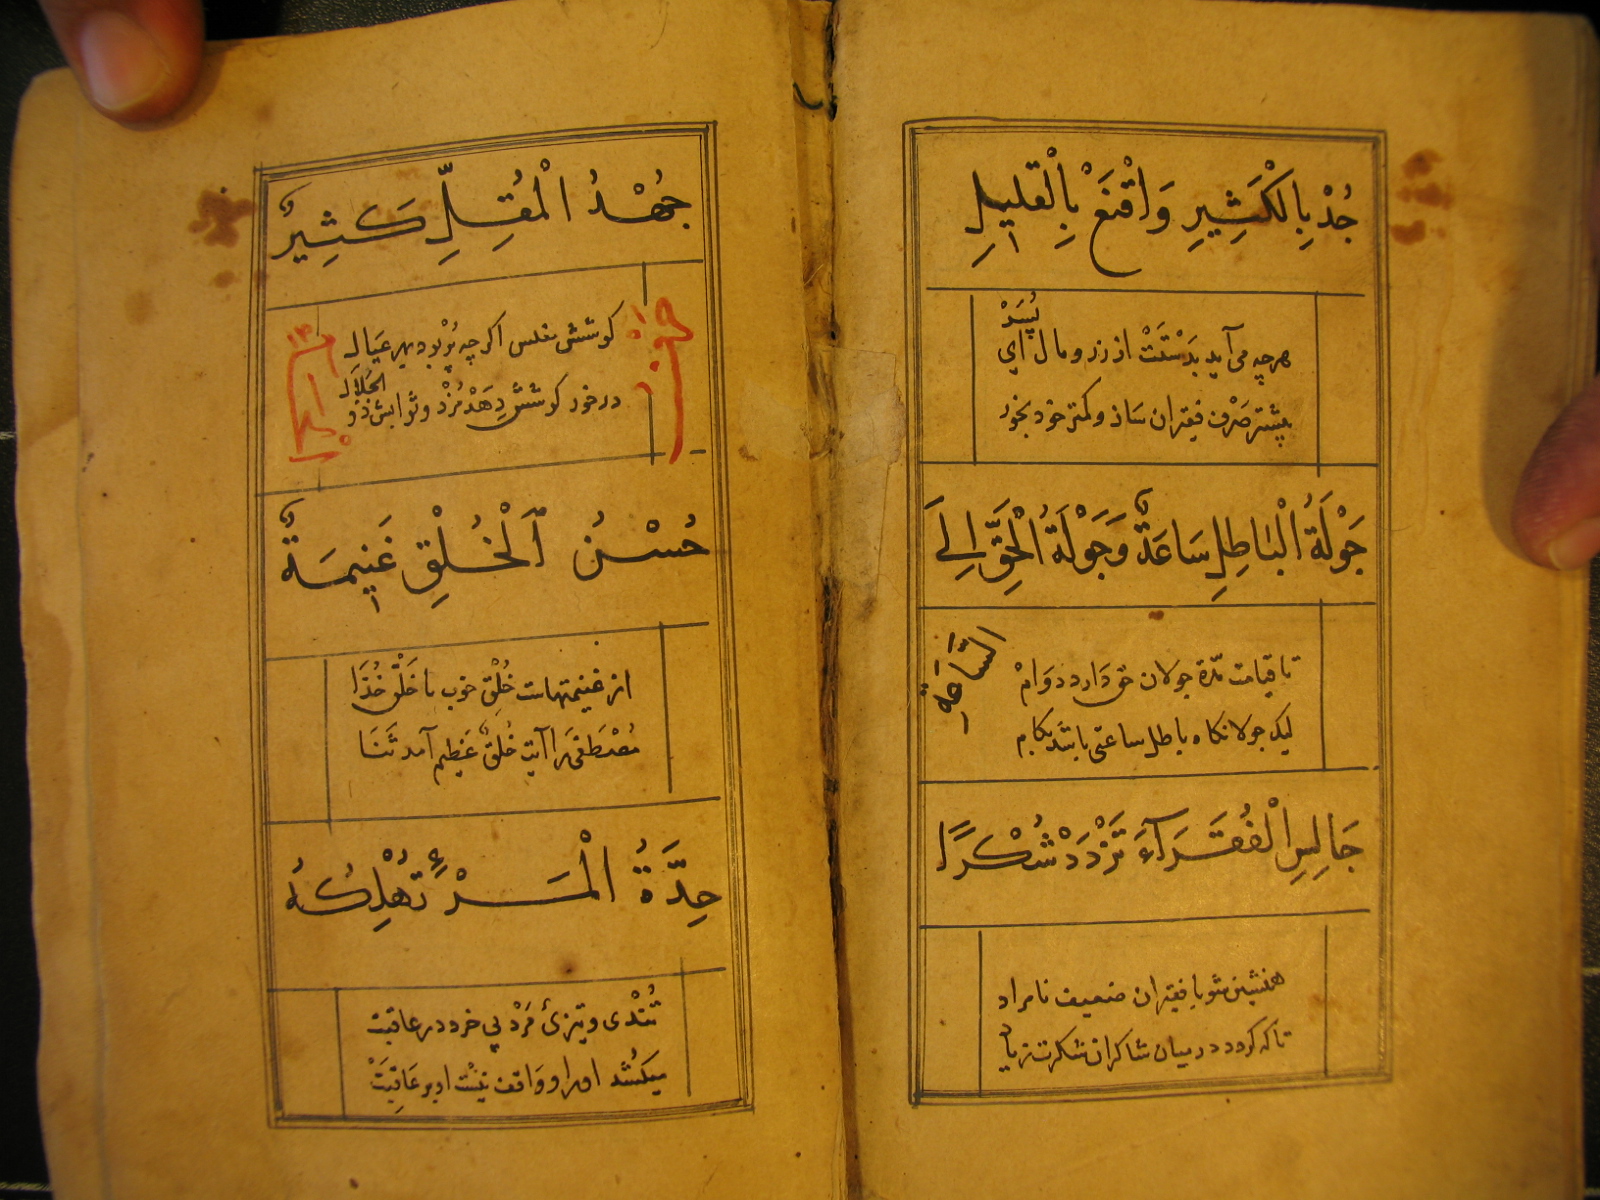 جُدْ بِالْكَثِيرِ وَاقْنَعْ بِالْقَلِيلِ
هرچه می آید بدَسْتَتْ از زر و مال ای پسَرْ
بیشتر صَرْف فقیران ساز و کمتر خود بخور
جَوْلَةُ الْبَاطِلِ سَاعَةٌ وَجَوْلَةُ الْحَقِّ اِلَى
السَّاعَةِ
تا قیامت مدّة جولان حق دَارد دوَامْ
لیک جولانکاه باطل ساعتی باشَد بکام
جَالِسِ الْفُقَرَآءَ تَزْدَدْ شُكْرًا
همنشین شو با فقیران ضعیف نامراد
تاکه کردد در میان شاکران شکرت زیاد
جُهْدُ الْمُقِلِّ كَثِيرٌ
کوشش مفلس اکرچه پُرْ بود بهر عیال
درخور کوشش دِهَدْ مُزْد و ثوابش ذو الجَلاَل
حُسْنُ الْخُلْقِ غَنِيمَةٌ
از غنیمتهاست خُلْقِ خوب با خَلْق خُدَا
مُصْطَفَی را آیت خُلْقٍ عَظِیم آمد ثَنَا
حِدَّةُ الْمَرْءِ تُهْلِكُهُ
تُنْدی و تیزیٔ مَرْد بی خرد در عاقبت
میکُشد اورا و واقف نیسْت او بر عَاقِبَتْ